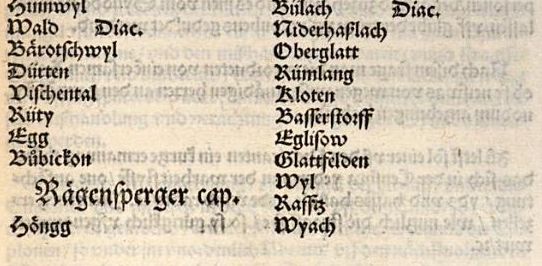 Hinwyl
Wald Diac.
Bärotschwyl
Dürten
Vischental
Rüty
Egg
Bůbickon
Rägensperger cap.
Höngg
Bülach Diac.
Niderhaßlach
Oberglatt
Rümlang
Kloten
Basserstorff
Eglisow
Glattfelden
Wyl
Rafftz
Wyach